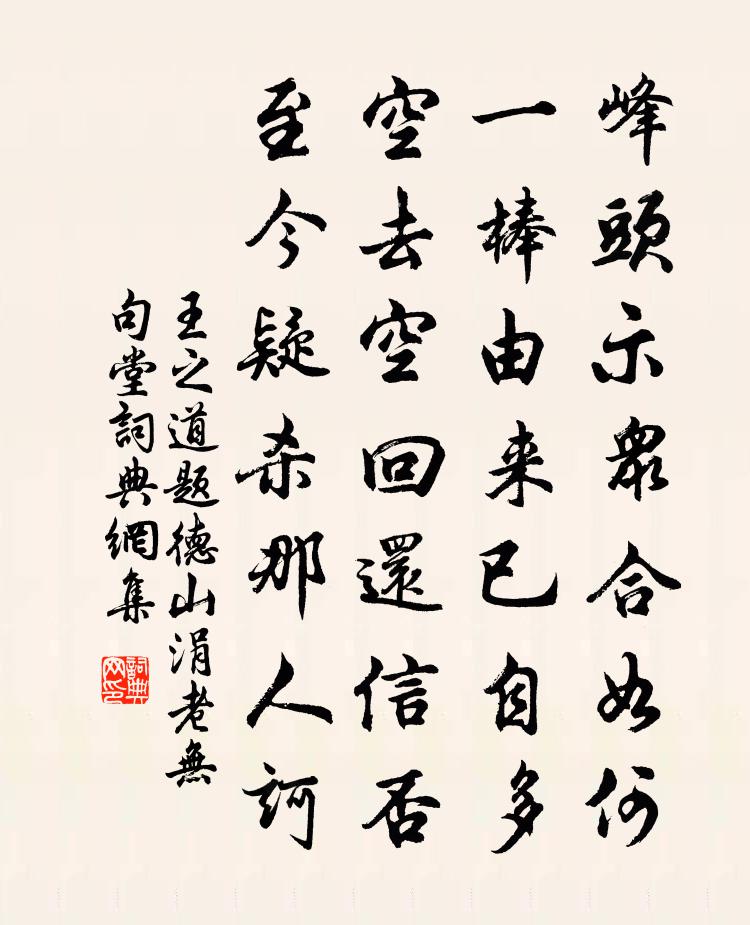 峰頭示眾合如何
一棒由来已自多
空去空回還信否
至今疑杀那人訶
王之道題德山涓老無
句堂詞典網集
詞典网印